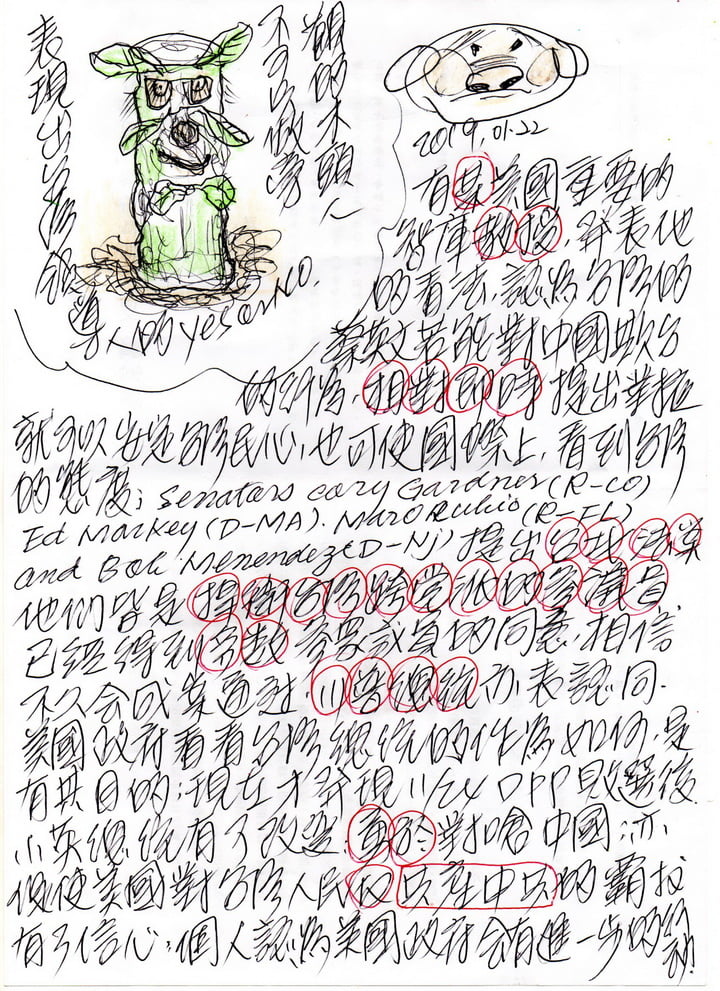 糊的木頭人
不可以做當
表現出台灣領
導人的 yes or no.
2019.01.22
有某美國重要的
智庫教授,發表他
的看法,認為台灣的
蔡英文若能對中國欺台
的行為,相對即時提出
就可以安定台灣民心,也可使國際上,看到台灣
的態度; Senators Cory Gardner (R-CO)
Ed Markey (D-MA). Maro Rubio (R-FL)
and Bob Menendez (D-NJ) 提出法案
他們皆是捍衛台灣跨党派的參議員
已經得到多數參眾議員的同意,相信
不久会成案通過,川普總統亦表認同.
美國政府看看台灣總統的作為如何,是
有其目的;現在才發現11/24 DPP敗選後
小英總統有了改變,勇於對中國;亦
促使美國對台灣人民反共產中共的霸权
有了信心;個人認為美國政府会有進一步的